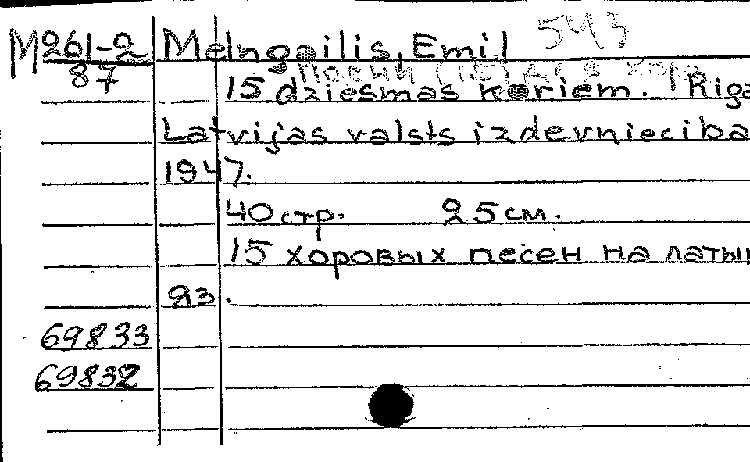 М 261-2 Melngailis, Emil 543
87
15 dziesmas koriem. Riga
Latvijas valsts izdevnieciba
1947.
40 стр. 25 см.
15 хоровых песен на латыш
яз.
69833
69832